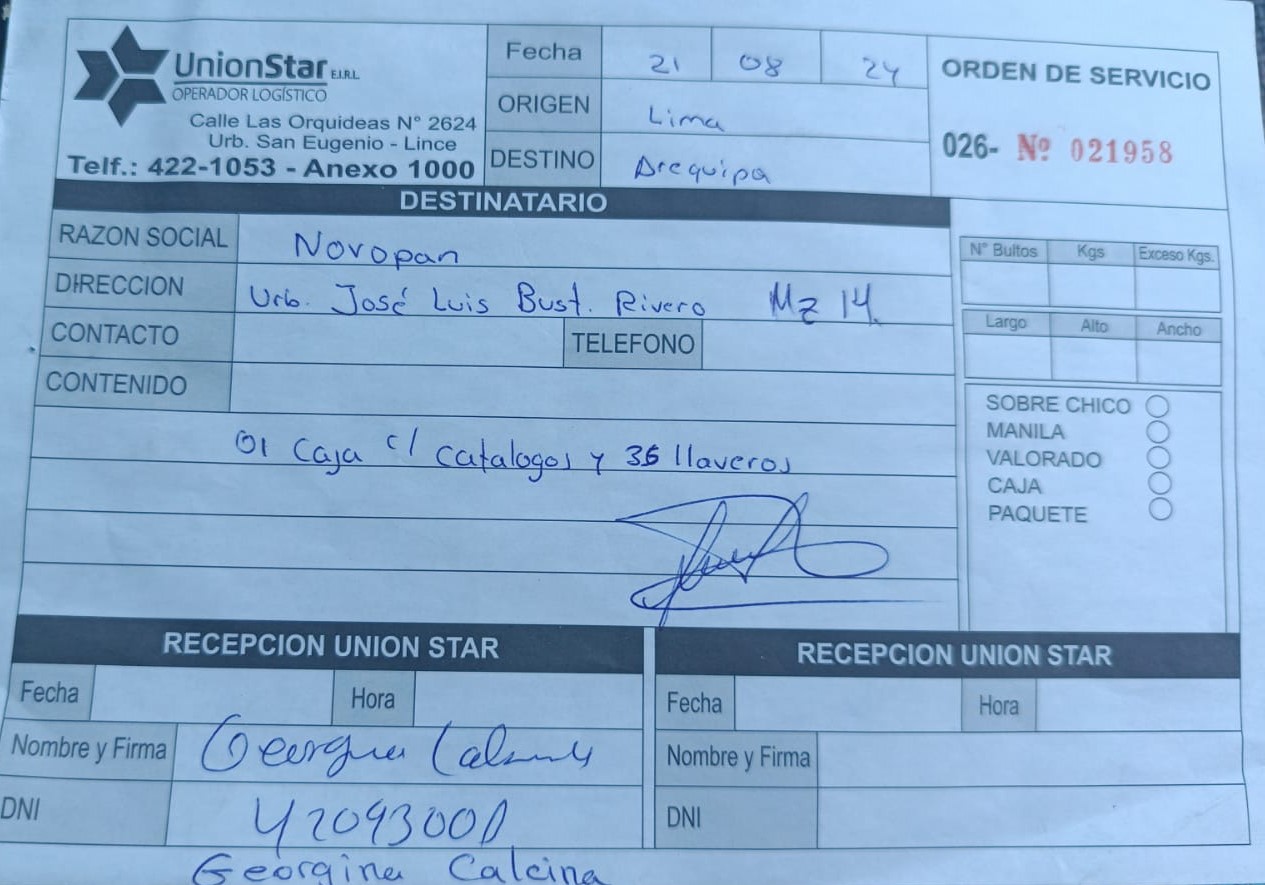 UnionStar E.I.R.L.
OPERADOR LOGÍSTICO
Calle Las Orquideas N° 2624
Urb. San Eugenio - Lince
Telf.: 422-1053 - Anexo 1000
Fecha 21 08 24
ORIGEN Lima
DESTINO Arequipa
ORDEN DE SERVICIO
026- Nº 021958
DESTINATARIO
RAZON SOCIAL Novopan
DIRECCION Urb. José Luis Bust. Rivero Mz 14.
CONTACTO TELEFONO
CONTENIDO
01 Caja c/ catalogos y 36 llaveros
N° Bultos Kgs Exceso Kgs.
Largo Alto Ancho
SOBRE CHICO
MANILA
VALORADO
CAJA
PAQUETE
RECEPCION UNION STAR
Fecha Hora
Nombre y Firma
DNI
Georgina Calcina
RECEPCION UNION STAR
Fecha Hora
Nombre y Firma
DNI